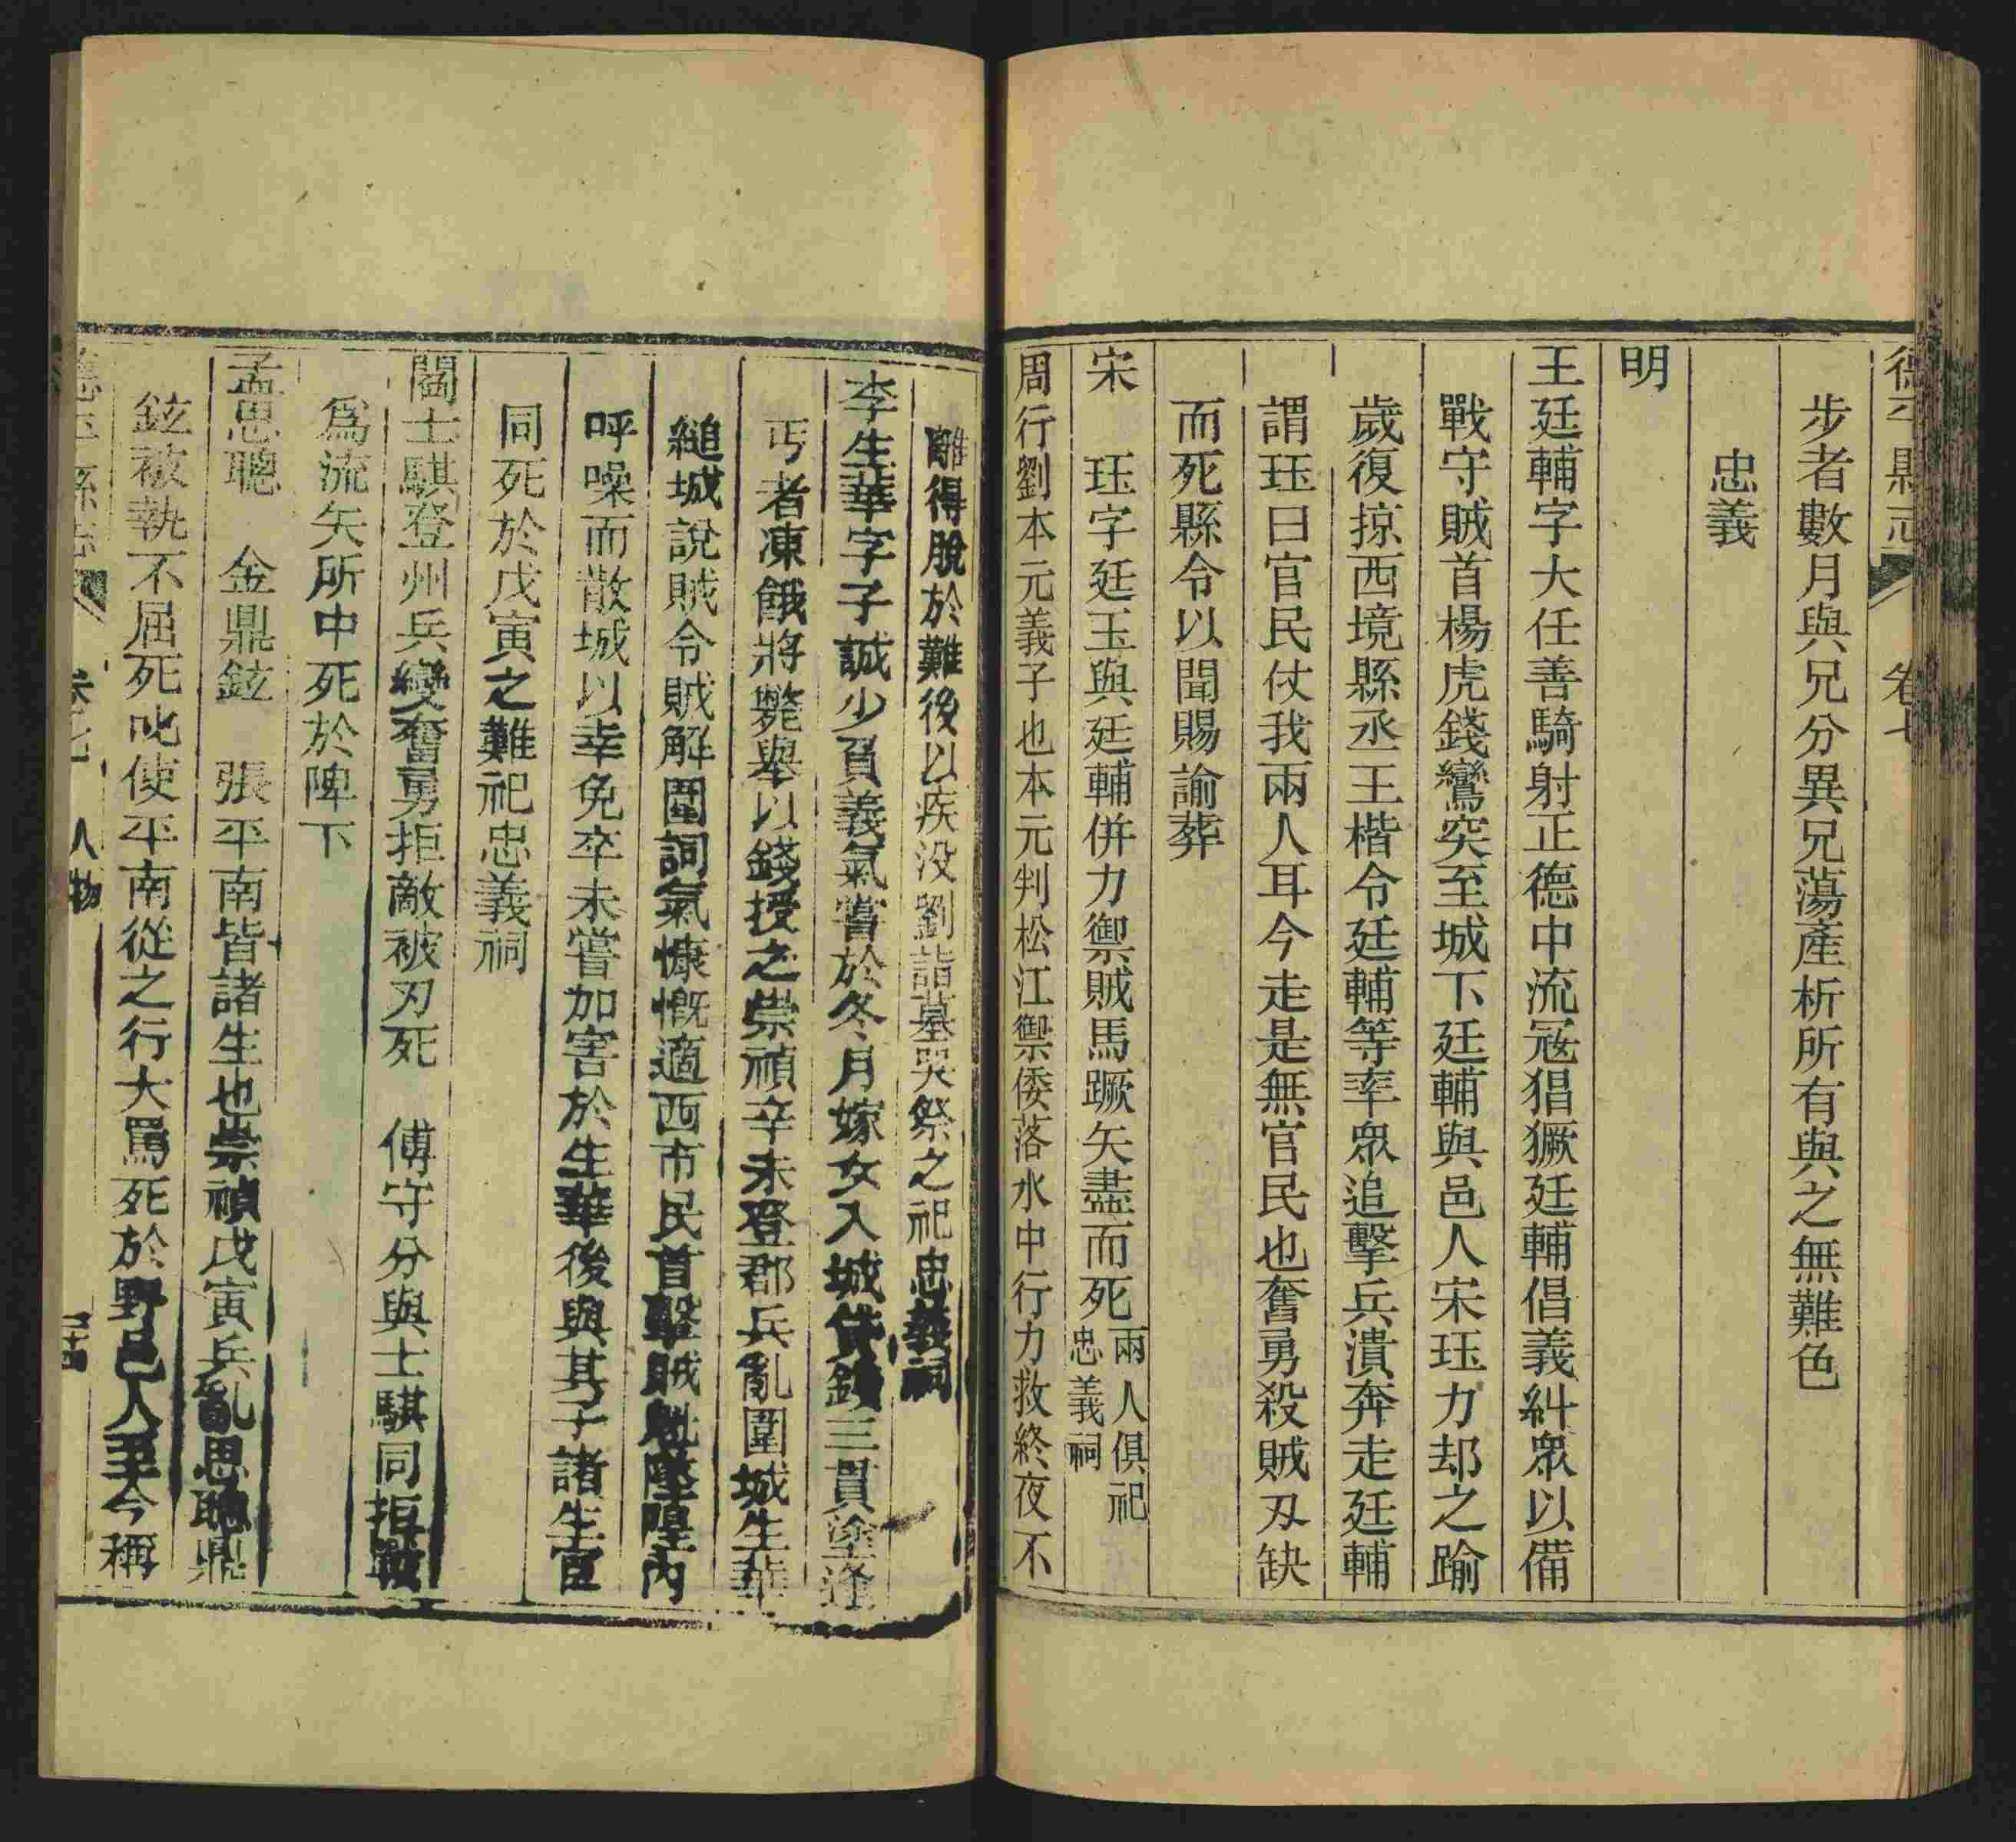 德平縣志 卷七
步者數月與兄分異兄蕩產析所有與之無難色
忠義
明
王廷輔字大任善騎射正德中流寇猖獗廷輔倡義糾衆以備
戰守賊首楊虎錢鸞突至城下廷輔與邑人宋珏力却之踰
歲復掠西境縣丞王楷令廷輔等率衆追擊兵潰奔走廷輔
謂珏曰官民仗我兩人耳今走是無官民也奮勇殺賊刃缺
而死縣令以聞賜諭葬
宋 珏字廷玉與廷輔併力禦賊馬蹶矢盡而死兩人俱祀忠義祠
周行劉本元義子也本元判松江禦倭落水中行力救終夜不
離得脫於難後以疾没劉詣墓哭祭之祀忠義祠
李生華字子誠少負義氣嘗於冬月嫁女入城貸錢三貫塗逢
丐者凍餓將斃舉以錢授之崇禎辛未登郡兵亂圍城生華
縋城說賊令賊解圍詞氣慷慨適西市民首擊賊墜隍內
呼噪而散城以幸免卒未嘗加害於生華後與其子諸生宦
同死於戊寅之難祀忠義祠
閻士騏登州兵變奮勇拒敵被刃死 傅守分與士騏同拒敵
爲流矢所中死於陴下
孟思聰 金鼎鉉 張平南皆諸生也崇禎戊寅兵亂思聰鼎
鉉被執不屈死叱使平南從之行大罵死於野邑人至今稱
德平縣志 卷七 人物